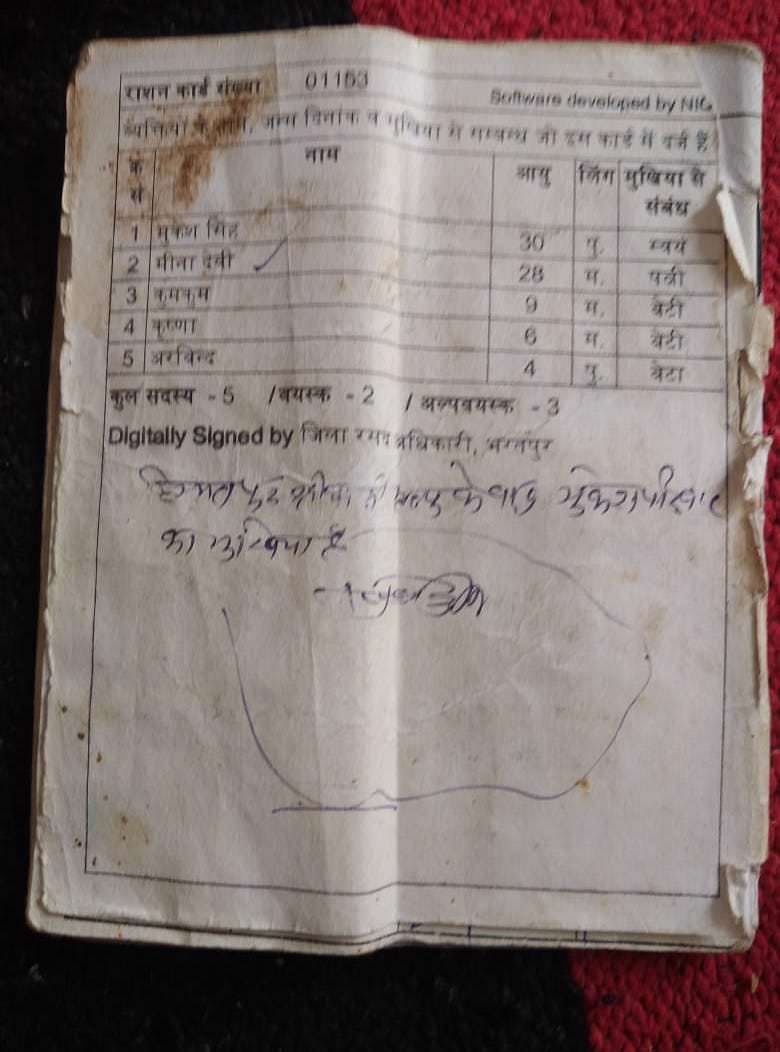 राशन कार्ड संख्या 01153
Software developed by NIC
व्यक्तियों के नाम, जन्म दिनांक व मुखिया से सम्बन्ध जो इस कार्ड में दर्ज हैं
क्र सं नाम आयु लिंग मुखिया से संबंध
1 मुकेश सिंह 30 पु. स्वयं
2 मीना देवी 28 म. पत्नी
3 कुमकुम 9 म. बेटी
4 कृष्णा 6 म. बेटी
5 अरविन्द 4 पु. बेटा
कुल सदस्य - 5 /वयस्क - 2 / अल्पवयस्क - 3
Digitally Signed by जिला रसद अधिकारी, भरतपुर
के बाद मुकेश
का मुखिया है